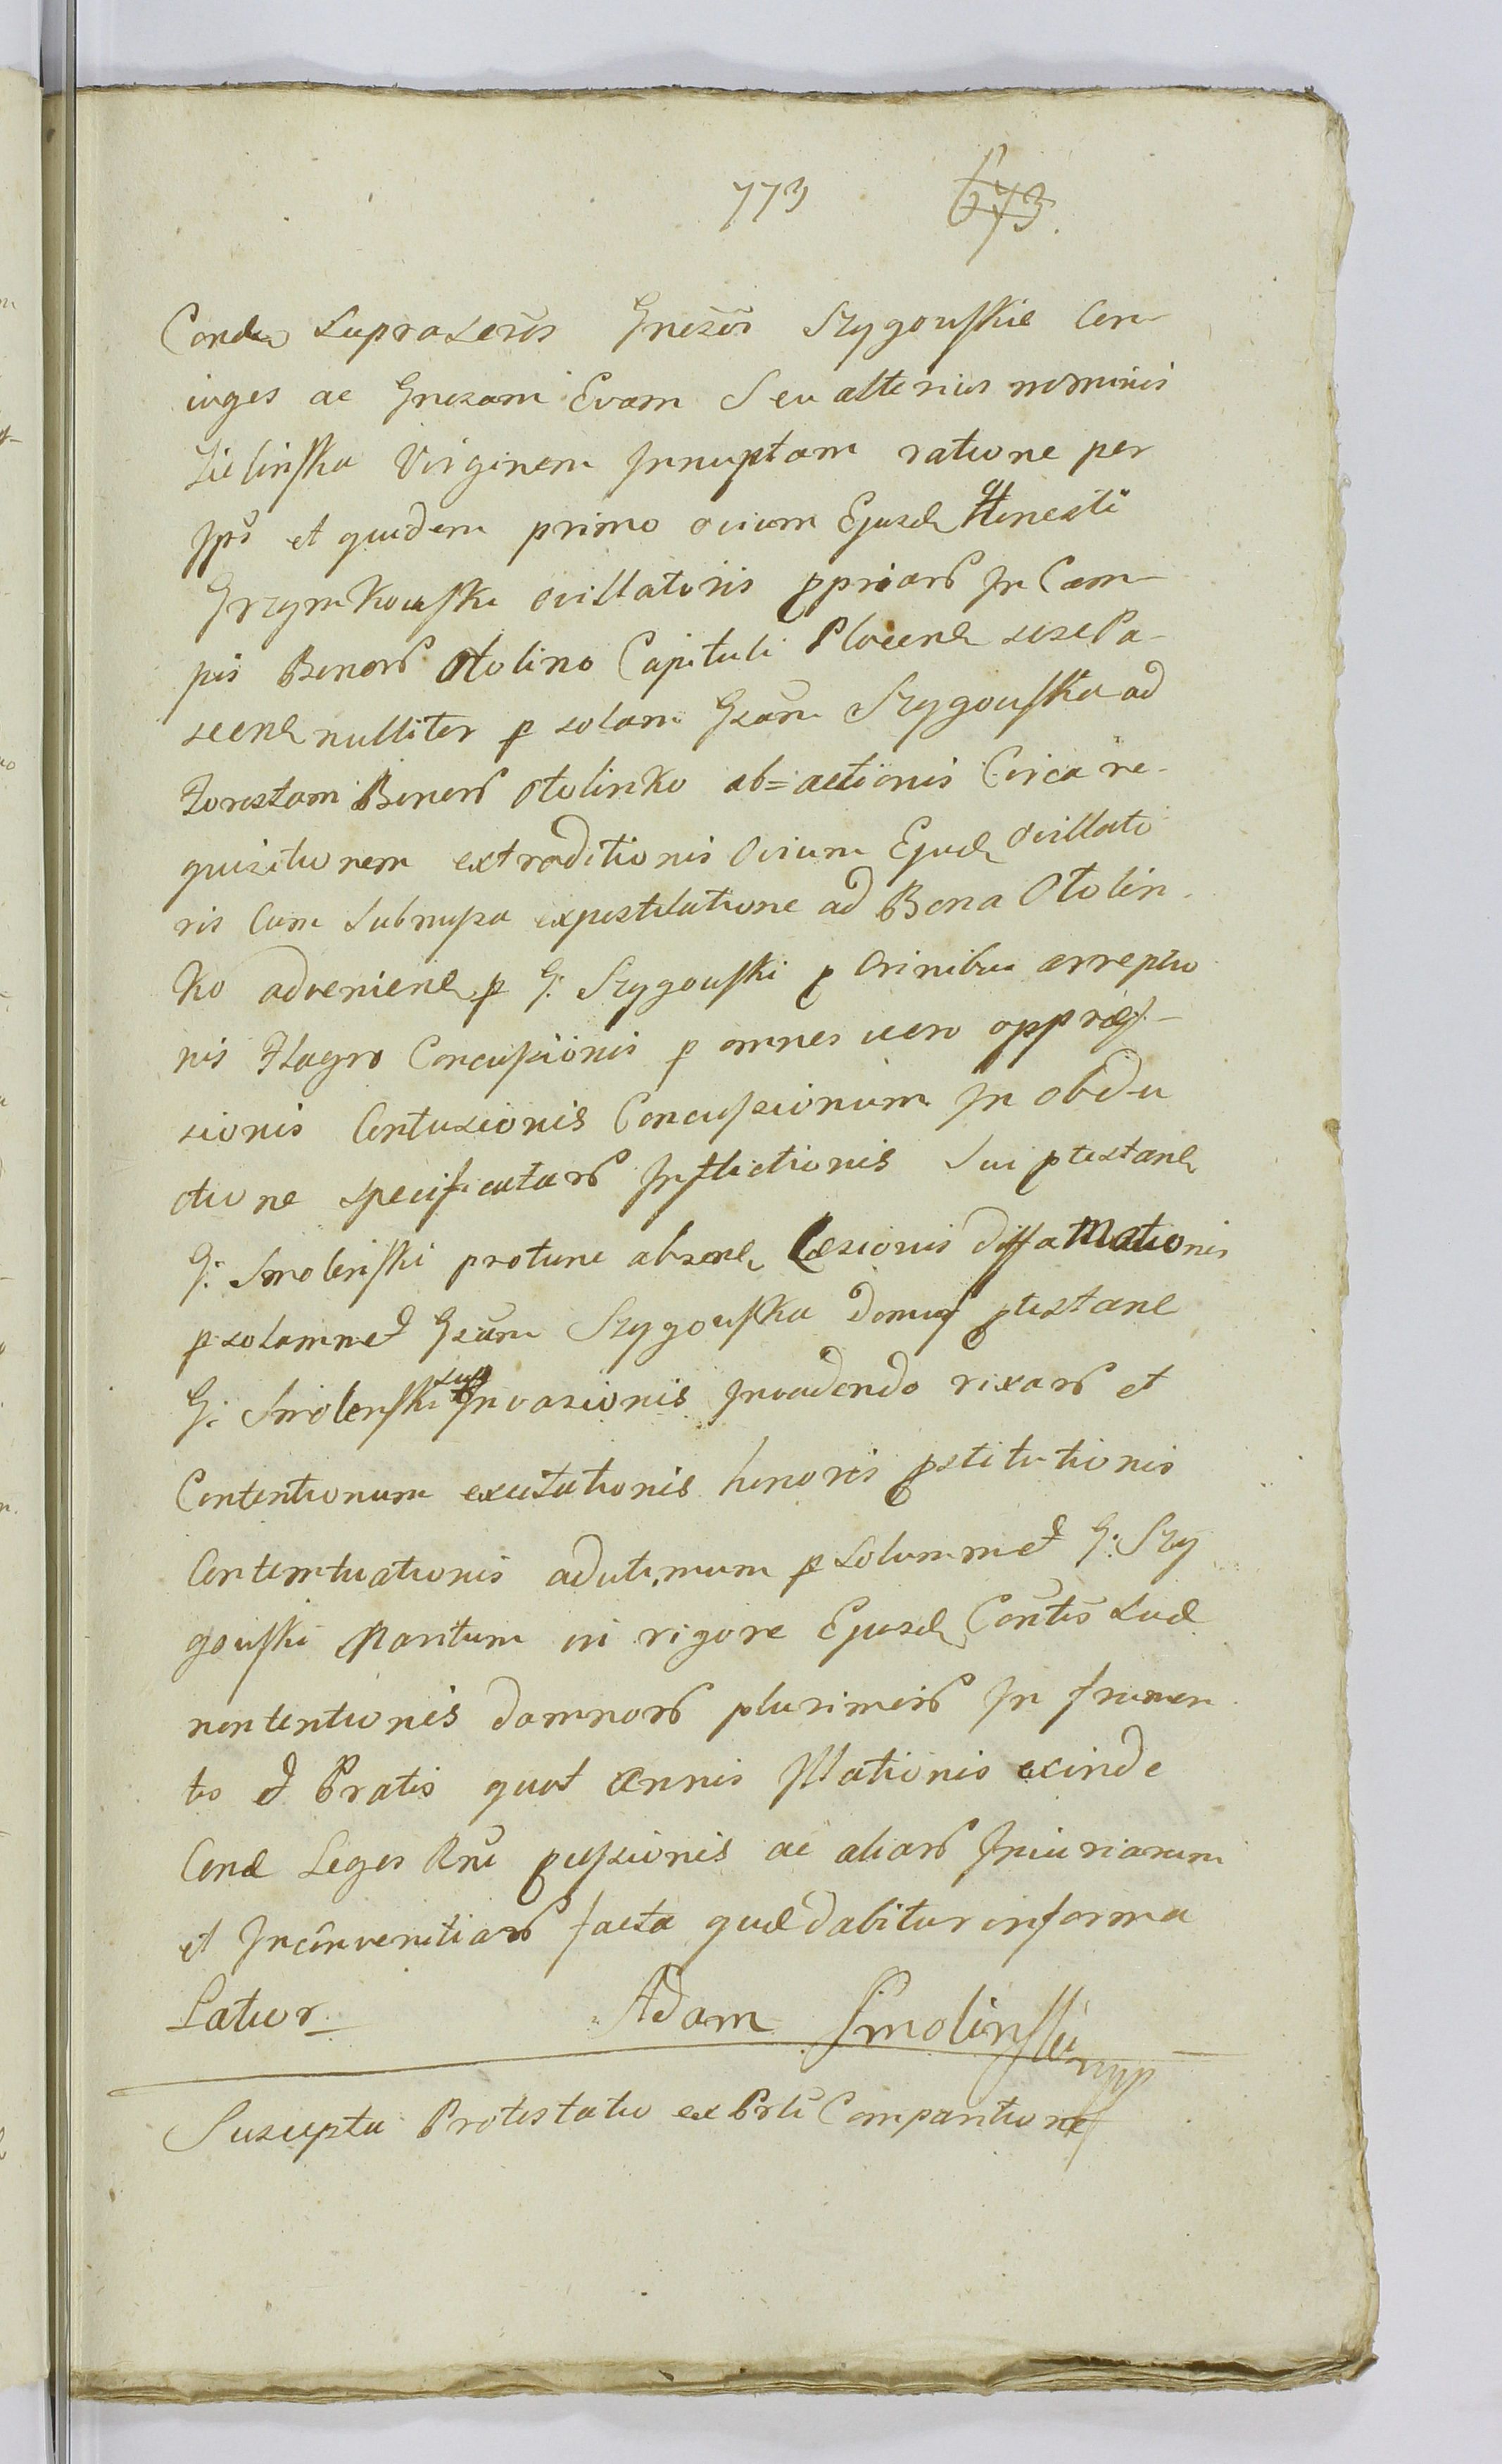 773 673.
Conde suprascrūs Gnezōs Szygouskie Con
iuges ac Gnezam Evam Seu alterius nominis
Zielinska Virginem Innuptam ratione per
Ips et quidem primo ovium Ejusd Honesti
Grzymkowski ovillatoris ppriar In Cam
pis Bonor Otolino Capituli Plocen sese Pa-
scen nulliter p solam Gzām Szygouska ad
Forestam Bonor Otolinko ab=actionis Circa re-
quisitionem extraditionis Ovium Ejusd Ovillato
ris Cum Submissa expostulatione ad Bona Otolin-
ko advenien p G: Szygouski p Crinibus arreptio
nis Flagro Concussionis p omnes vero oppraes-
sionis Contusionis Concussionum In obdu
ctione specificatar Inflictionis Sui ptestan
G: Smolenski protunc absen Laesionis diffamationis
p solammet Gzām Szygouska domus ptestan
G: Smolenski sup Invasionis Invadendo rixar et
Contentionum excitationis honoris pstitutionis
Contemtuationis adutimum p Solummet G: Szy
gouski Maritum in rigore Ejusd Contis Suae
nontentionis damnor plurimor In frumen
to et Pratis quot annis Illationis exinde
Cond Leges Rni pessionis ac aliar Iniuriarum
et Inconvenitiar facta quae dabitur in forma
Latior Adam Smolinski mpp
Suscepta Protestatio ex Prlī Comparitione